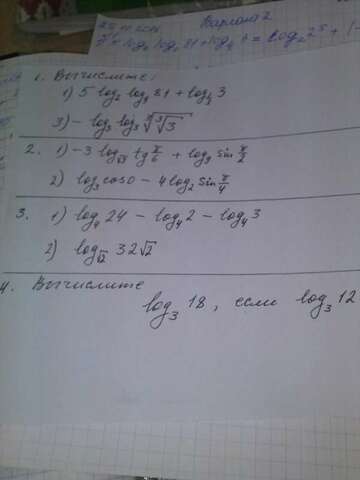 Вариант 2
1. Вычислите:
1) 5 log₂ log₃ 81 + log₄ 3
3) - log₃ log₃ ∛∛3
2. 1) -3 log_√3 tg π/6 + log₉ sin π/2
2) log₃ cos 0 - 4 log₂ sin π/4
3. 1) log₄ 24 - log₄ 2 - log₄ 3
2) log_√2 32√2
4. Вычислите
log₃ 18, если log₃ 12